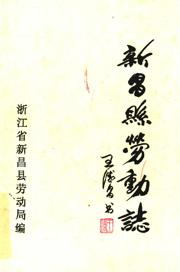 新昌縣勞動誌
浙江省新昌县劳动局编